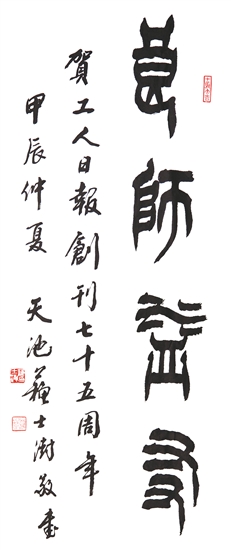 良师益友
賀工人日報創刊七十五周年
甲辰仲夏 天池蘇士澍敬書